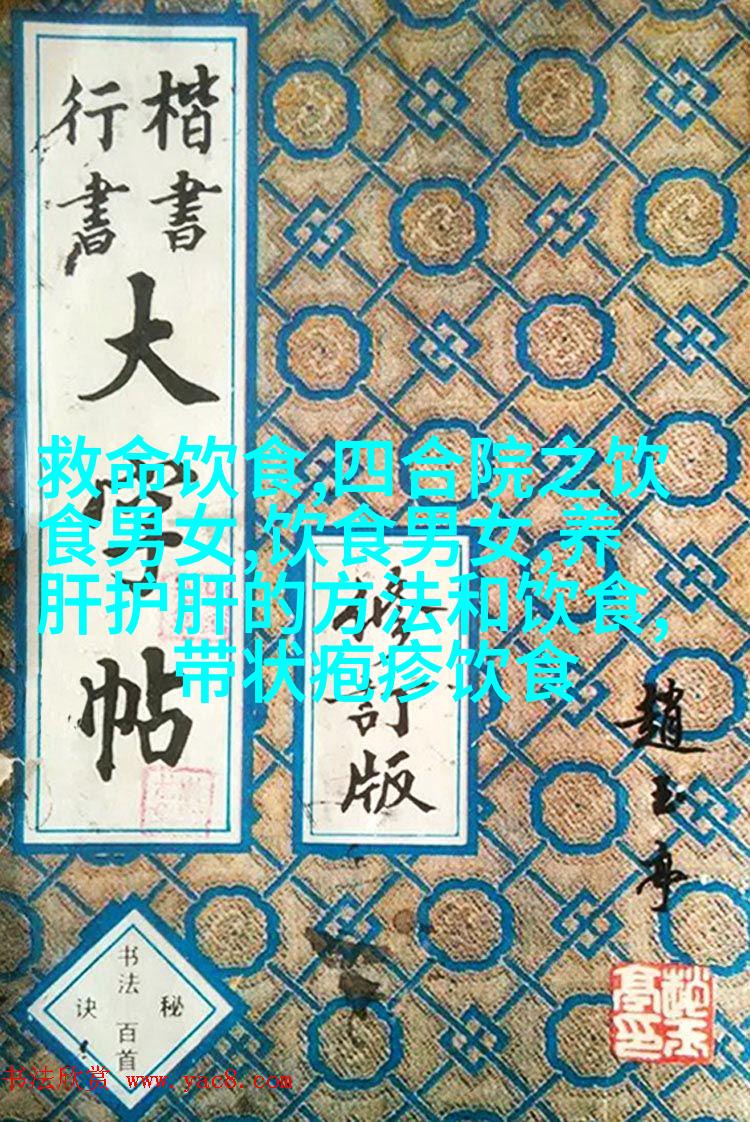 楷書
行書
大字帖
修訂版
趙玉亭
救命饮食,四合院之饮
食男女,饮食男女,养
肝护肝的方法和饮食,
带状疱疹饮食
书法百首
秘诀
书法欣赏 www.yac8.com